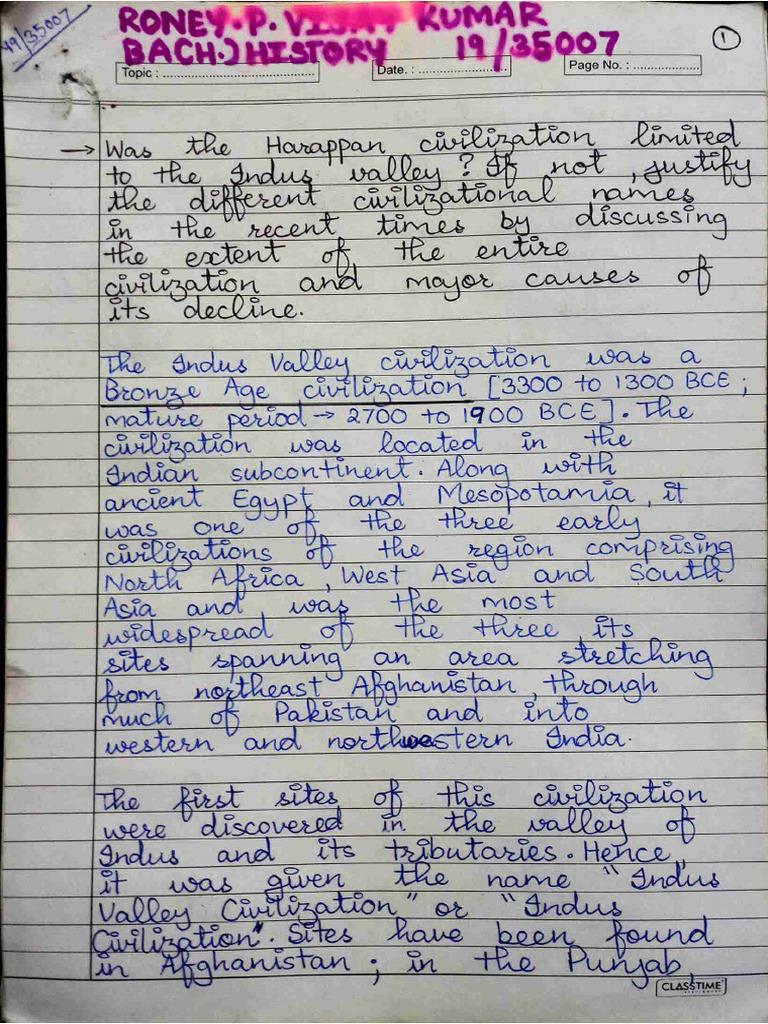 19/35007
RONEY.P. VIJAY KUMAR
BACH.) HISTORY 19/35007
1
Topic : Date. : Page No. :
→ Was the Harappan civilization limited
to the Indus valley? If not, justify
the different civilizational names
in the recent times by discussing
the extent of the entire
civilization and major causes of
its decline.
The Indus Valley civilization was a
Bronze Age civilization [3300 to 1300 BCE ;
mature period → 2700 to 1900 BCE]. The
civilization was located in the
Indian subcontinent. Along with
ancient Egypt and Mesopotamia, it
was one of the three early
civilizations of the region comprising
North Africa, West Asia and South
Asia and was the most
widespread of the three, its
sites spanning an area stretching
from northeast Afghanistan, through
much of Pakistan and into
western and northwestern India.
The first sites of this civilization
were discovered in the valley of
Indus and its tributaries. Hence,
it was given the name "Indus
Valley Civilization" or "Indus
Civilization". Sites have been found
in Afghanistan; in the Punjab,
CLASSTIME